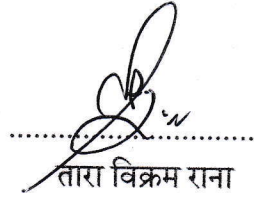 तारा विक्रम राना